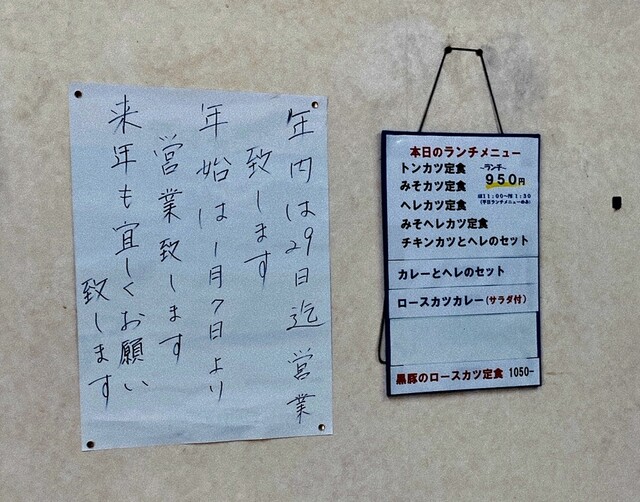 年内は29日迄営業
致します
年始は1月7日より
営業致します
来年も宜しくお願い
致します
本日のランチメニュー
トンカツ定食
みそカツ定食
ヘレカツ定食
みそヘレカツ定食
チキンカツとヘレのセット
-ランチ-
950円
カレーとヘレのセット
ロースカツカレー(サラダ付)
黒豚のロースカツ定食 1050-